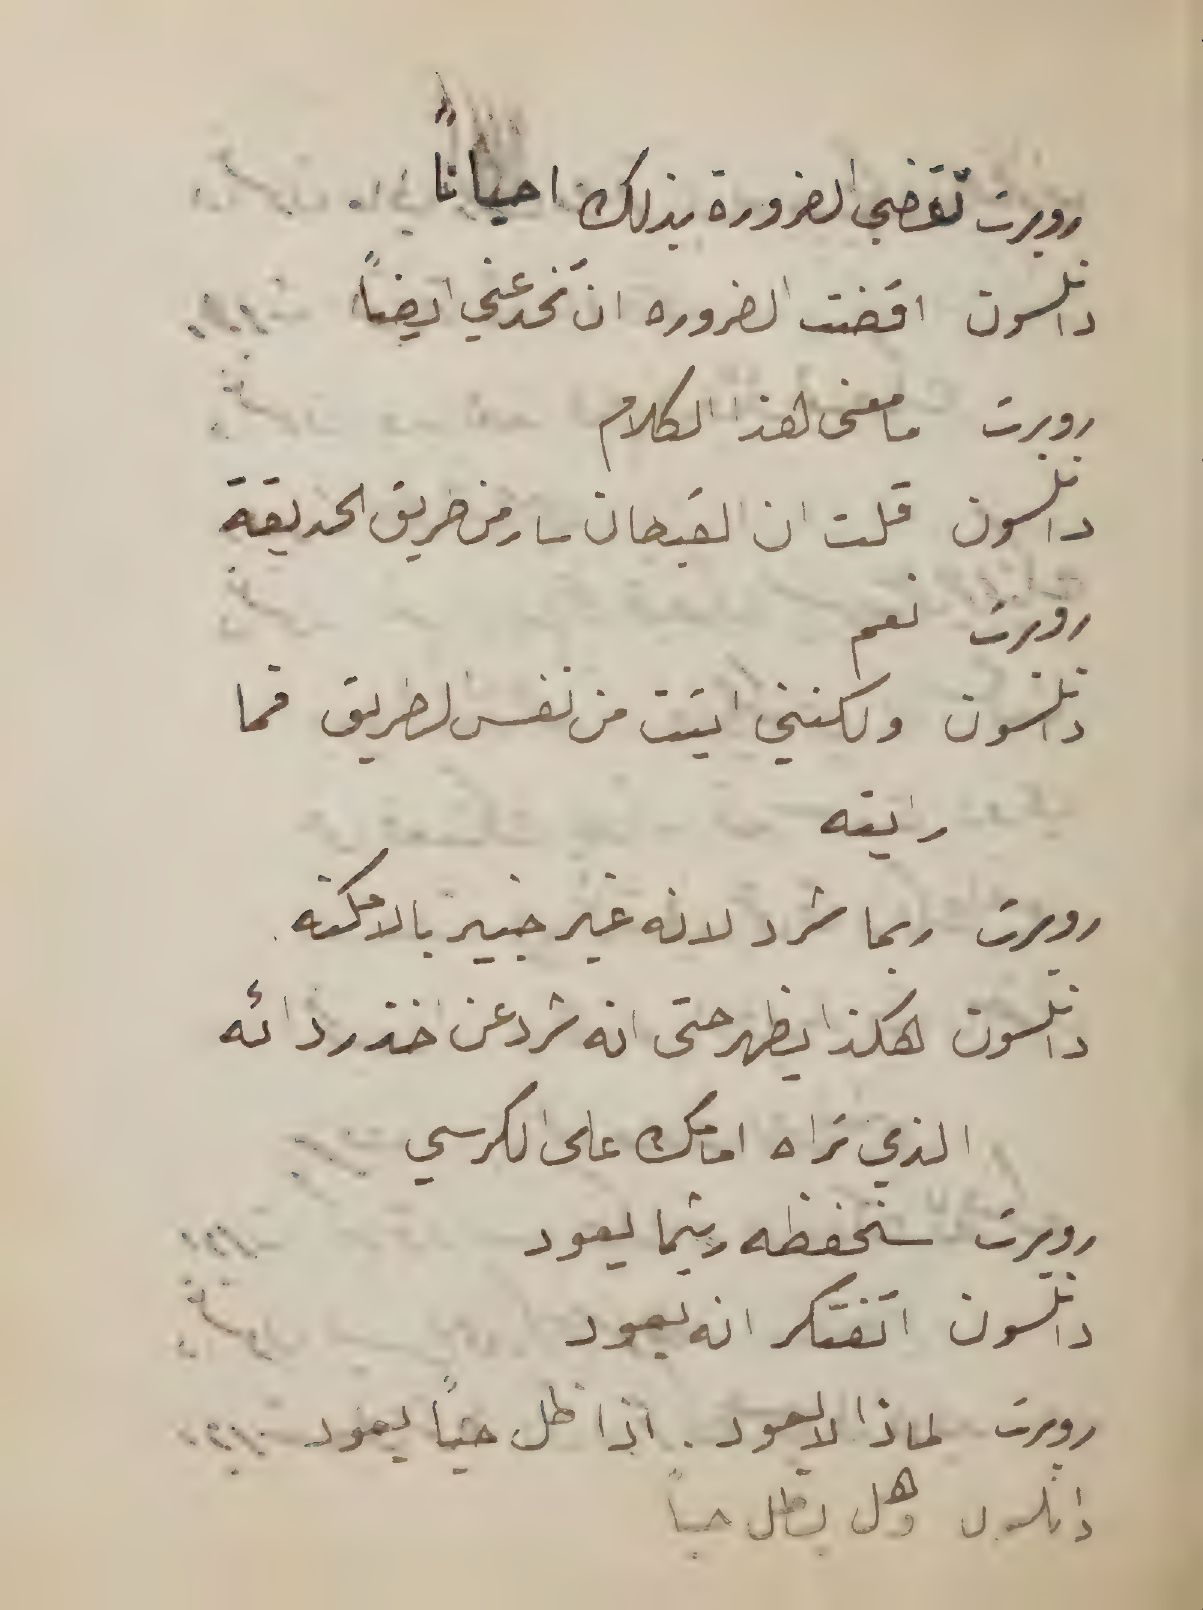 روبرت تقضي الضرورة بذلك احياناً
دانلسون اقضت الضروره ان تخدعني ايضاً
روبرت ما معنى هذا الكلام
دانلسون قلت ان القبطان سار من طريق الحديقة
روبرت نعم
دانلسون ولكنني اتيت من نفس الطريق فما
رايته
روبرت ربما شرد لانه غير خبير بالامكنه
دانلسون هكذا يظهر حتى انه شرد عن اخذ ردائه
الذي تراه امامك على الكرسي
روبرت سنحفظه ريثما يعود
دانلسون اتفتكر انه يعود
روبرت لماذا لا يعود . اذا ظل حياً يعود
دانلسون وهل يظل حياً